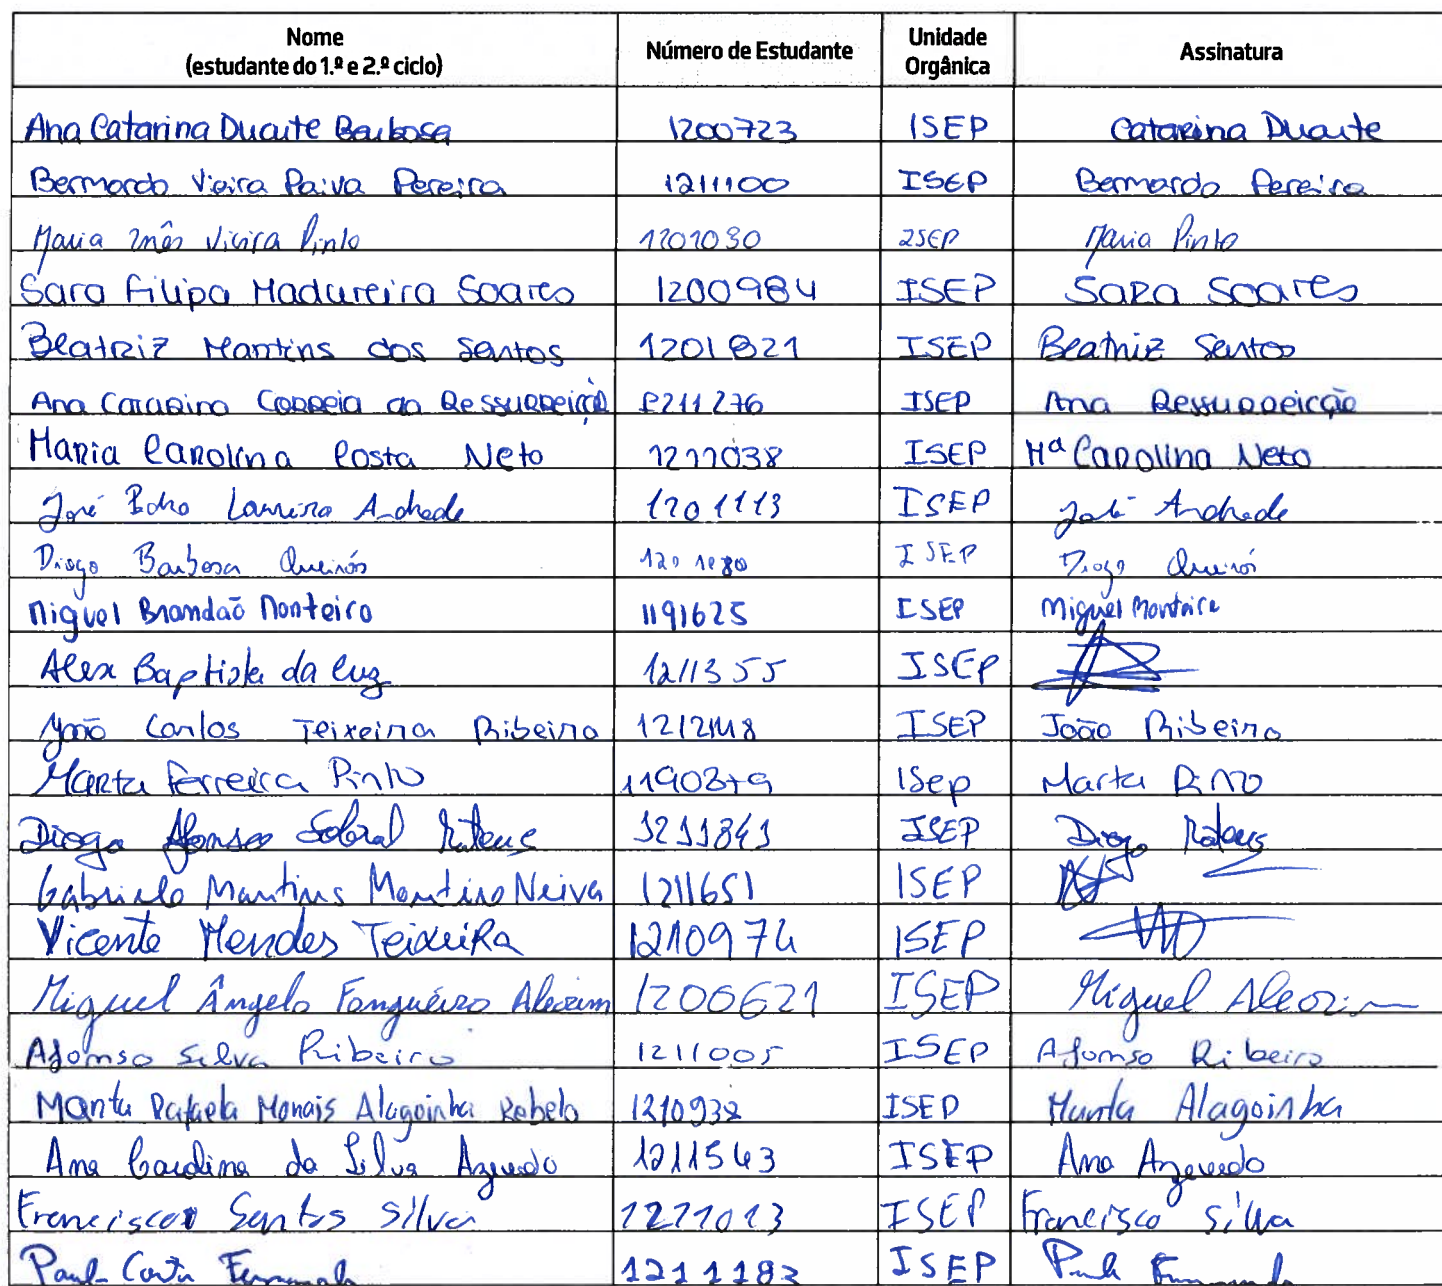 Nome Número de Estudante Unidade Assinatura
(estudante do 1.º e 2.º ciclo) Orgânica
Ana Catarina Duarte Barbosa 1200723 ISEP Catarina Duarte
Bernardo Vieira Paiva Pereira 1211100 ISEP Bernardo Pereira
Maria Inês Vieira Pinto 1201030 ISEP Maria Pinto
Sara Filipa Madureira Soares 1200984 ISEP Sara Soares
Beatriz Martins dos Santos 1201821 ISEP Beatriz Santos
Ana Catarina Correia da Ressurreição 1211276 ISEP Ana Ressurreição
Maria Carolina Costa Neto 1211038 ISEP Mª Carolina Neto
José Pedro Andrade 1201113 ISEP José Andrade
Diogo Barbosa Queirós 1201080 ISEP Diogo Queirós
Miguel Brandão Monteiro 1191625 ISEP Miguel Monteiro
Alex Baptista da Luz 1211355 ISEP
João Carlos Teixeira Ribeiro ISEP João Ribeiro
Marta Ferreira Pinto 1190379 ISep Marta Pinto
Diogo Afonso Sobral Mateus 1211841 ISEP Diogo Mateus
Gabriela Martins Monteiro Neiva 1211651 ISEP
Vicente Mendes Teixeira 1210974 ISEP
Miguel Ângelo Fangueiro Alecrim 1200621 ISEP Miguel Alecrim
Afonso Silva Ribeiro 1211005 ISEP Afonso Ribeiro
Marta Rafaela Morais Alagoinha Rebelo 1210938 ISEP Marta Alagoinha
Ana Carolina da Silva Azevedo 1211543 ISEP Ana Azevedo
Francisco Santos Silva 1211013 ISEP Francisco Silva
Costa 1211183 ISEP